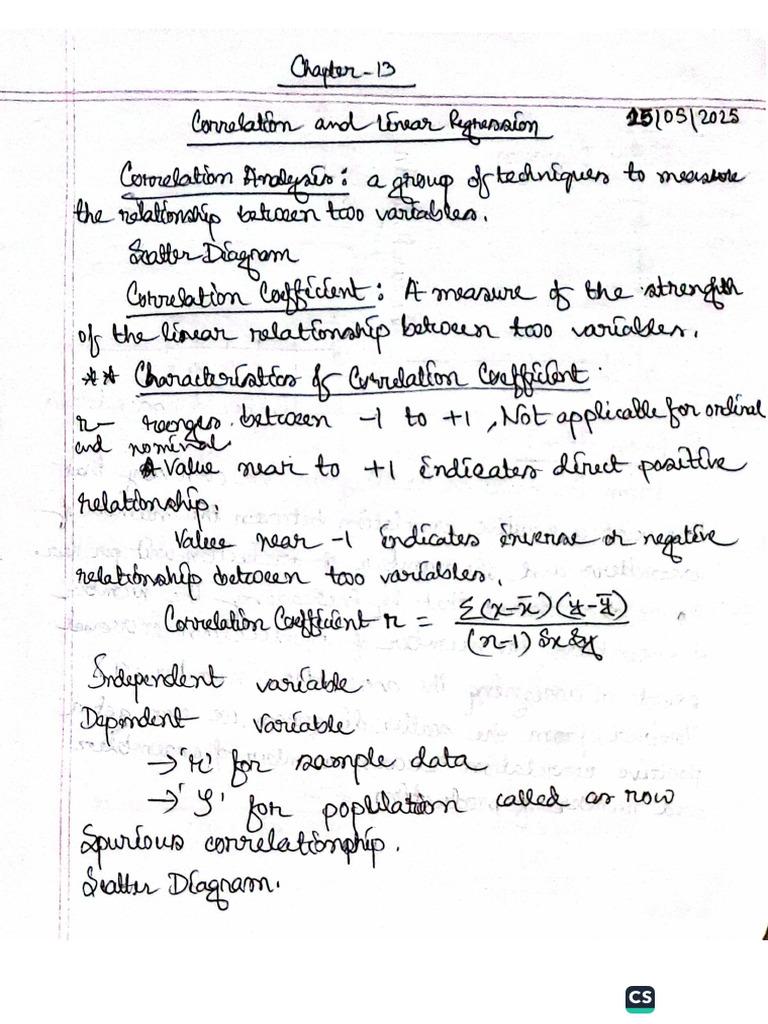 Chapter-13
Correlation and Linear Regression 15/05/2025
Correlation Analysis: a group of techniques to measure
the relationship between two variables.
Scatter Diagram
Correlation Coefficient: A measure of the strength
of the linear relationship between two variables.
** Characteristics of Correlation Coefficient
r- ranges between -1 to +1, Not applicable for ordinal
and nominal
A value near to +1 indicates direct positive
relationship.
Value near -1 indicates inverse or negative
relationship between two variables.
Correlation Coefficient r = Σ(x-x̄)(y-ȳ) / (n-1) SxSy
Independent variable
Dependent variable
→ 'r' for sample data
→ 'ρ' for poplilation called as row
Spurious correlationphip.
Scatter Diagram.
CS